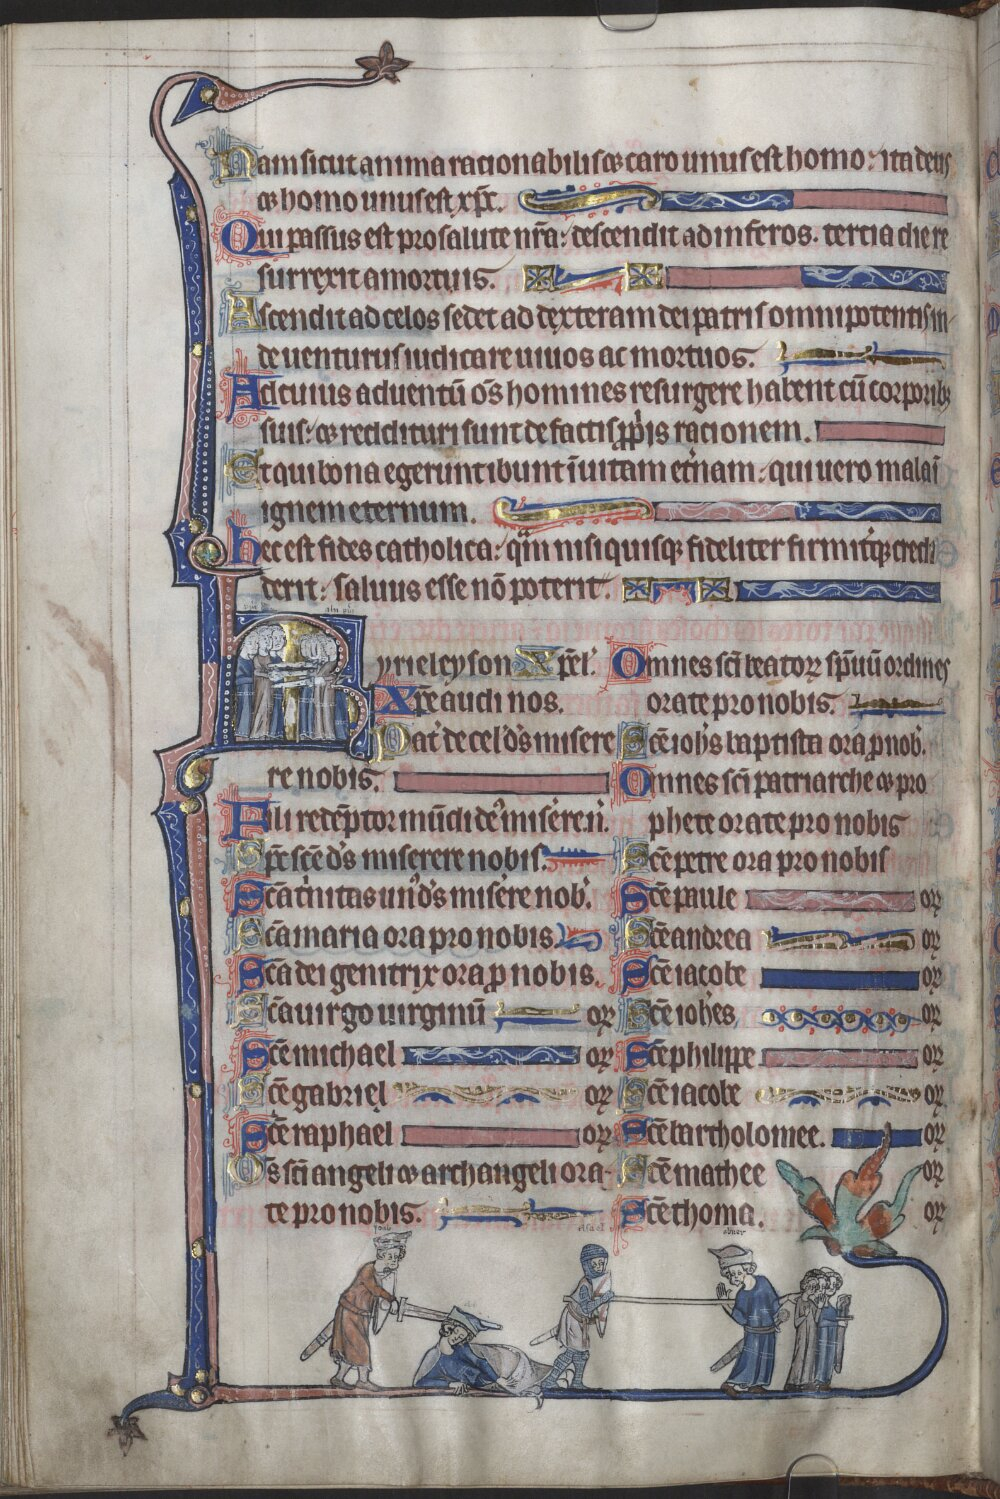 Nam sicut anima racionabilis & caro unus est homo: ita deus
& homo unus est xp̄c.
Qui passus est pro salute nr̄a: descendit ad inferos. tertia die re
surrexit a mortuis.
Ascendit ad celos sedet ad dexteram dei patris omnipotentis in
de uenturus iudicare uiuos ac mortuos.
Ad cuius aduentū oēs homines resurgere habent cū corporibꝫ
suis: & reddituri sunt de factis ꝓpriis racionem.
Et qui bona egerunt ibunt ī uitam et̄nam: qui uero mala ī
ignem eternum.
Hec est fides catholica: quā nisi quisqꝫ fideliter firmit̄qꝫ credi
derit: saluus esse nō poterit.
Kyrieleyson Xp̄el'.
Xp̄e audi nos.
Pat' de cel' d's misere
re nobis.
Fili redēptor mūdi de' misere. n'.
Sp̄e scē d's miserere nobis.
Scā t'nitas un' d's misere nob'.
Scā maria ora pro nobis.
Scā dei genitrix ora ꝓ nobis.
Scā uirgo uirginū or
Scē michael or
Scē gabriel or
Scē raphael or
Oēs sci angeli & archangeli ora
te pro nobis.
Omnes sci beatorꝝ spūū ordines
orate pro nobis.
Scē ioh's baptista ora ꝓ nob'.
Omnes sci patriarche & pro
phete orate pro nobis
Scē petre ora pro nobis
Scē paule or
Scē andrea or
Scē iacobe or
Scē ioh'es or
Scē philippe or
Scē iacobe or
Scē bartholomee. or
Scē mathee or
Scē thoma. or
ioab
asael
abner